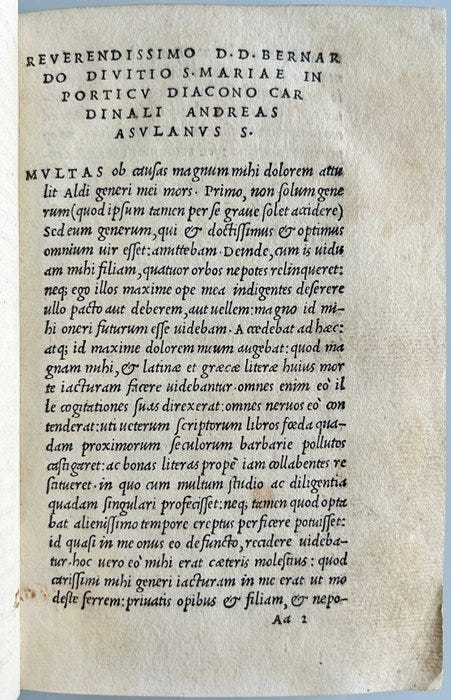 REVERENDISSIMO D.D.BERNAR
DO DIVITIO S.MARIAE IN
PORTICV DIACONO CAR
DINALI ANDREAS
ASVLANVS S.
MVLTAS ob causas magnum mihi dolorem attu
lit Aldi generi mei mors. Primo, non solum gene
rum (quod ipsum tamen per se graue solet accidere)
Sed eum generum, qui & doctissimus & optimus
omnium uir esset: amittebam. Deinde, cum is uidu
am mihi filiam, quatuor orbos nepotes relinqueret:
neq; ego illos maxime ope mea indigentes deserere
ullo pacto aut deberem, aut uellem: magno id mi-
hi oneri futurum esse uidebam. Accedebat ad hæc:
atq; id maxime dolorem meum augebat: quod ma
gnam mihi, & latinæ et græcæ literæ huius mor
te iacturam facere uidebantur. omnes enim eò il
le cogitationes suas direxerat: omnes neruos eò con
tenderat: uti ueterum scriptorum libros fœda qua-
dam proximorum seculorum barbarie pollutos
castigaret: ac bonas literas propè iam collabentes re
stitueret. in quo cum multum studio ac diligentia
quadam singulari profecisset: neq; tamen quod opta
bat alienissimo tempore ereptus perficere potuisset:
id quasi in me onus eo defuncto, recidere uideba-
tur. hoc uero eò mihi erat cæteris molestius: quod
carissimi mihi generi iacturam in me erat ut mo
deste ferrem: priuatis opibus & filiam, & nepo-
Aa 2